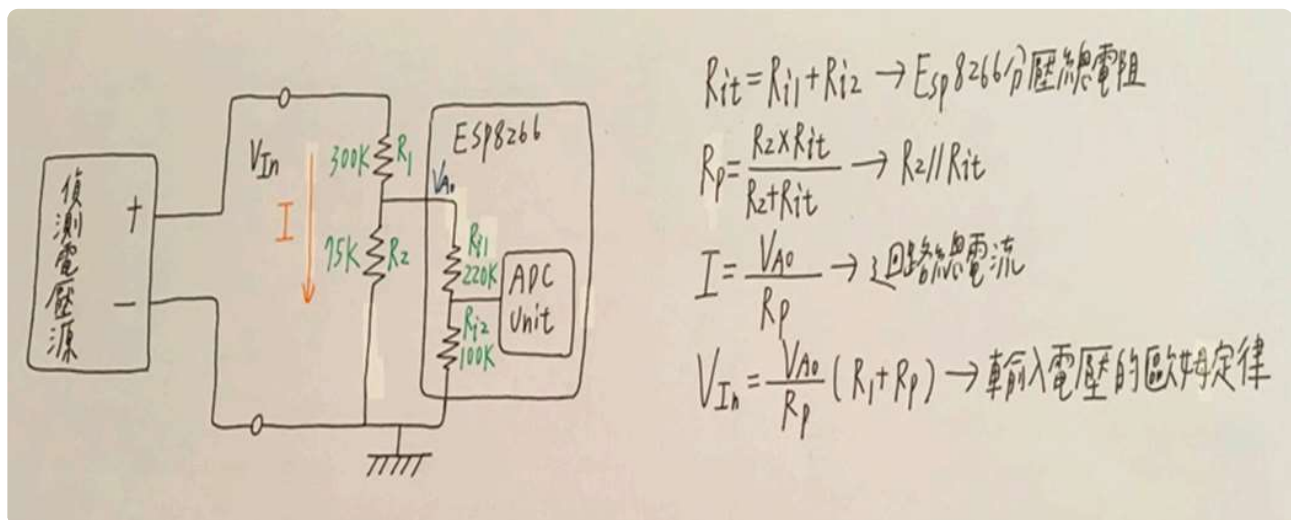 偵測電壓源
+
−
V_In
I
300K R1
75K R2
VA0
ESP8266
Ri1
220K
Ri2
100K
ADC
Unit
Rit=Ri1+Ri2 → Esp8266分壓總電阻
Rp=R2×Rit/R2+Rit → R2//Rit
I=VA0/Rp → 迴路總電流
V_In=VA0/Rp(R1+Rp) → 輸入電壓的歐姆定律